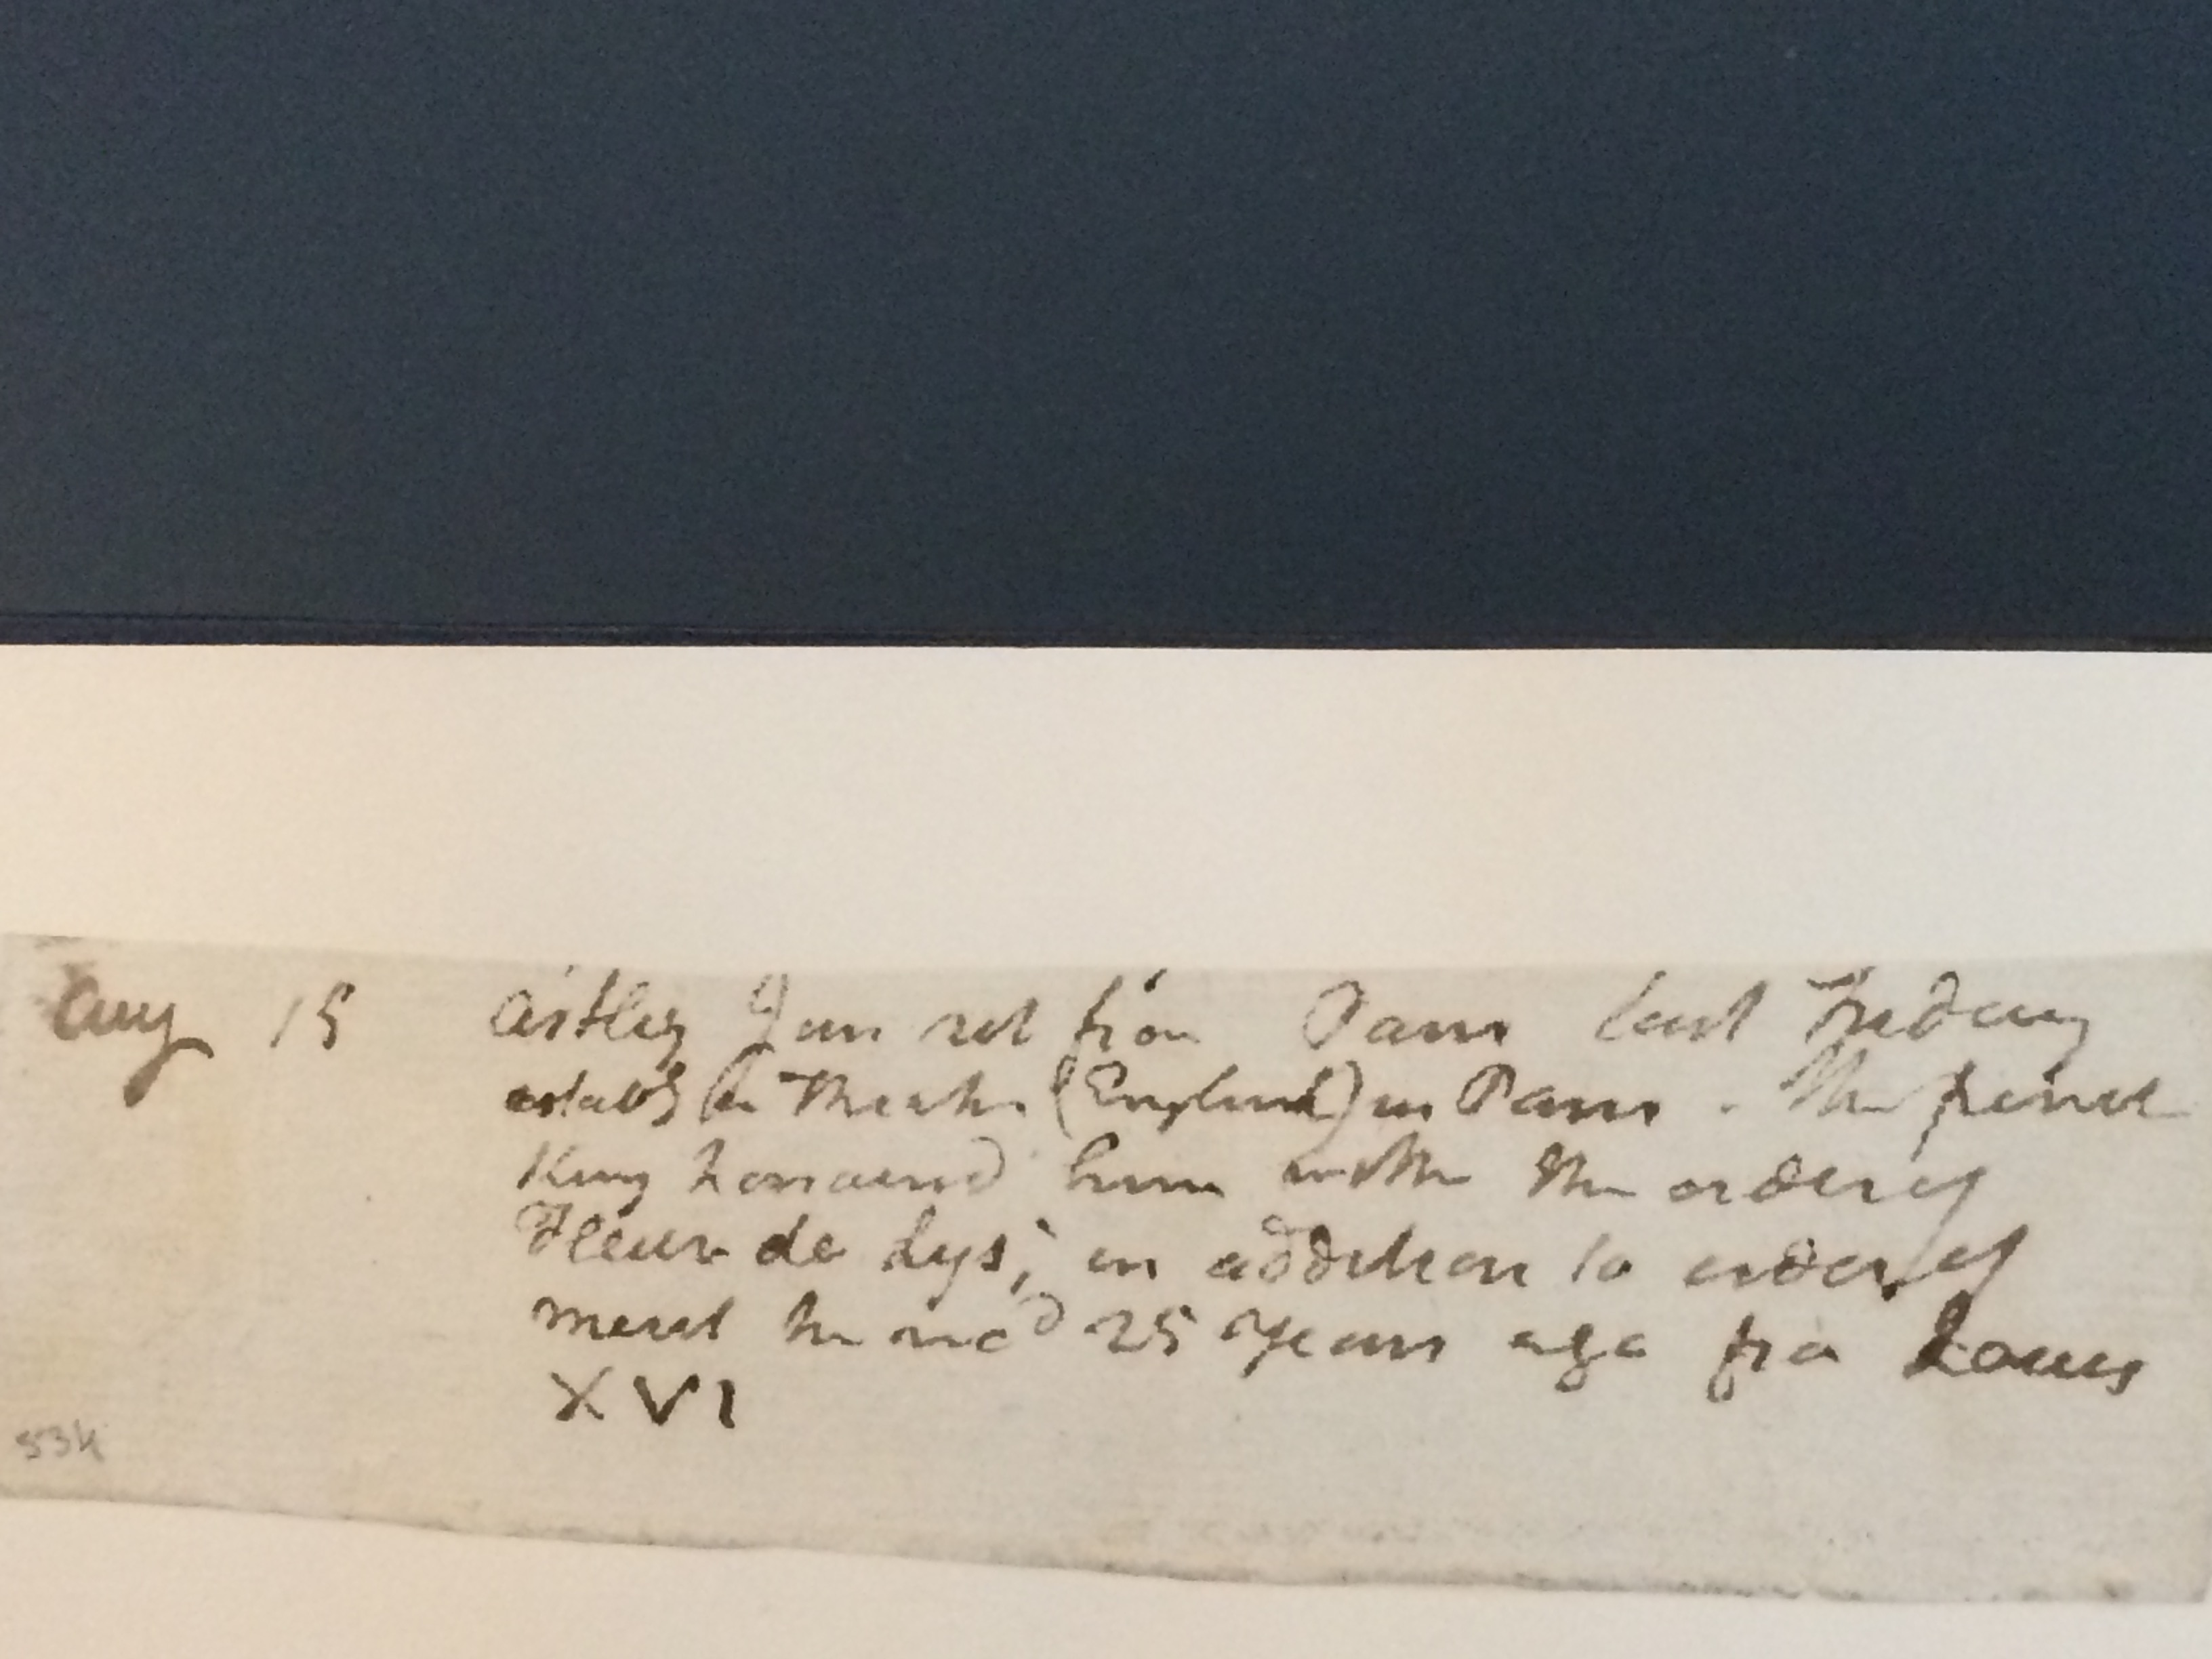 Aug 15 Astley Jun ret from Paris last Friday
establ(g a Theatre (English) in Paris - The french
King honoured him with the order of
Fleur de Lys, in addition to order of
merit he recd 25 Years ago fro Louis
XVI
534